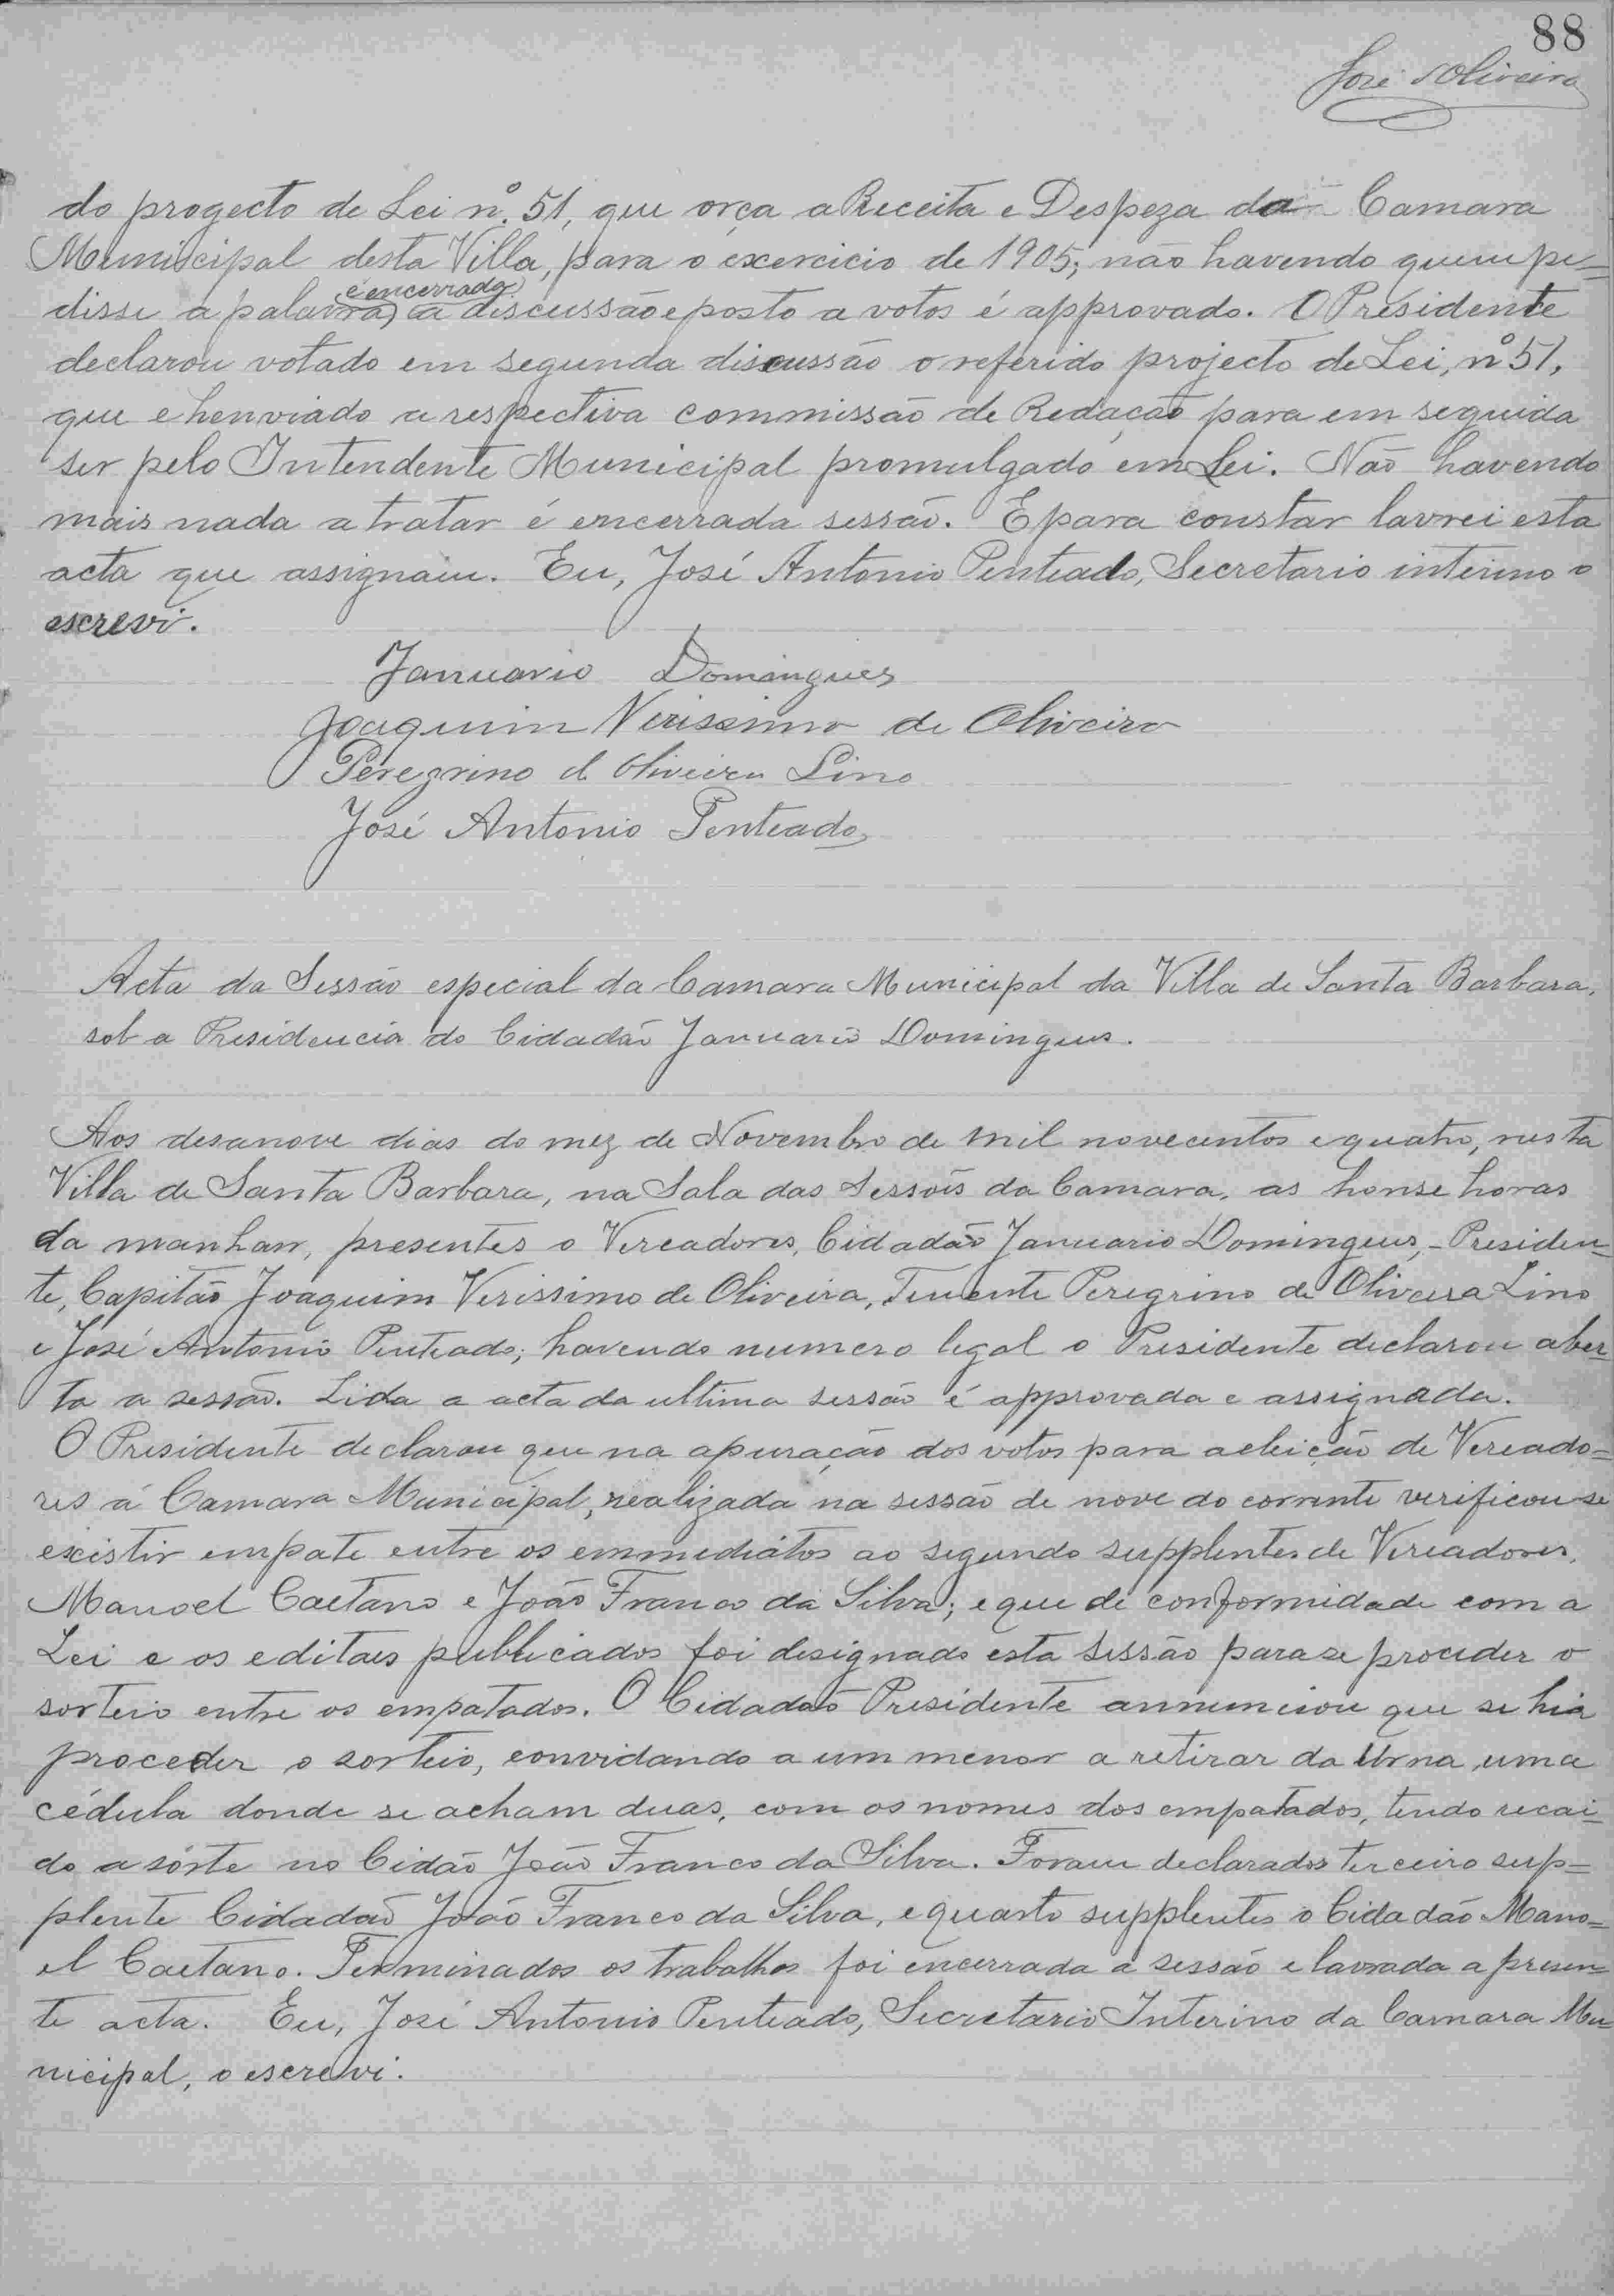 88
José Oliveira
do progecto de Lei nº. 51, que orça a Receita e Despeza da Camara
Municipal desta Villa, para o excercicio de 1905; não havendo quem pe=
é encerrada
disse a palavra, a discussão e posto a votos é approvado. O Presidente
declarou votado em segunda discussão o referido projecto de Lei, nº 51,
que e henviado a respectiva commissão de Redação para em seguida
ser pelo Intendente Municipal promulgado em Lei. Não havendo
mais nada a tratar é encerrada sessão. E para constar lavrei esta
acta que assignam. Eu, José Antonio Penteado, Secretario interino o
escrevi.
Januario Domingues
Joaquim Verissimo de Oliveira
Peregrino d Oliveira Lino
José Antonio Penteado
Acta da Sessão especial da Camara Municipal da Villa de Santa Barbara,
sob a Presidencia do Cidadão Januario Domingues.
Aos desanove dias do mez de Novembro de mil novecentos e quatro, nesta
Villa de Santa Barbara, na Sala das Sessois da Camara, as honse horas
da manhan, presentes o Vereadores, Cidadão Januario Domingues, - Presiden=
te, Capitão Joaquim Verissimo de Oliveira, Tenente Peregrino de Oliveira Lino
e José Antonio Penteado; havendo numero legal o Presidente declarou aber=
ta a sessão. Lida a acta da ultima sessão é approvada e assignada.
O Presidente declarou que na apuração dos votos para a eleição de Vereado=
res á Camara Municipal, realizada na sessão de nove do corrente verificou-se
excistir empate entre os emmediátos ao segundo supplentes de Vereadores,
Manoel Caetano e João Franco da Silva; e que de conformidade com a
Lei e os editaes publicados foi designado esta sessão para se proceder o
sorteio entre os empatados. O Cidadão Presidente annunciou que se hia
proceder o sorteio, convidando a um menor a retirar da Urna, uma
cédula donde se acham duas, com os nomes dos empatados, tendo recai=
do a sórte no Cidão João Franco da Silva. Foram declarados terceiro sup=
plente Cidadão João Franco da Silva, e quarto supplentes o Cidadão Mano=
el Caetano. Terminados os trabalhos foi encerrada a sessão e lavrada a presen=
te acta. Eu, José Antonio Penteado, Secretario Interino da Camara Mu=
nicipal, o escrevi.